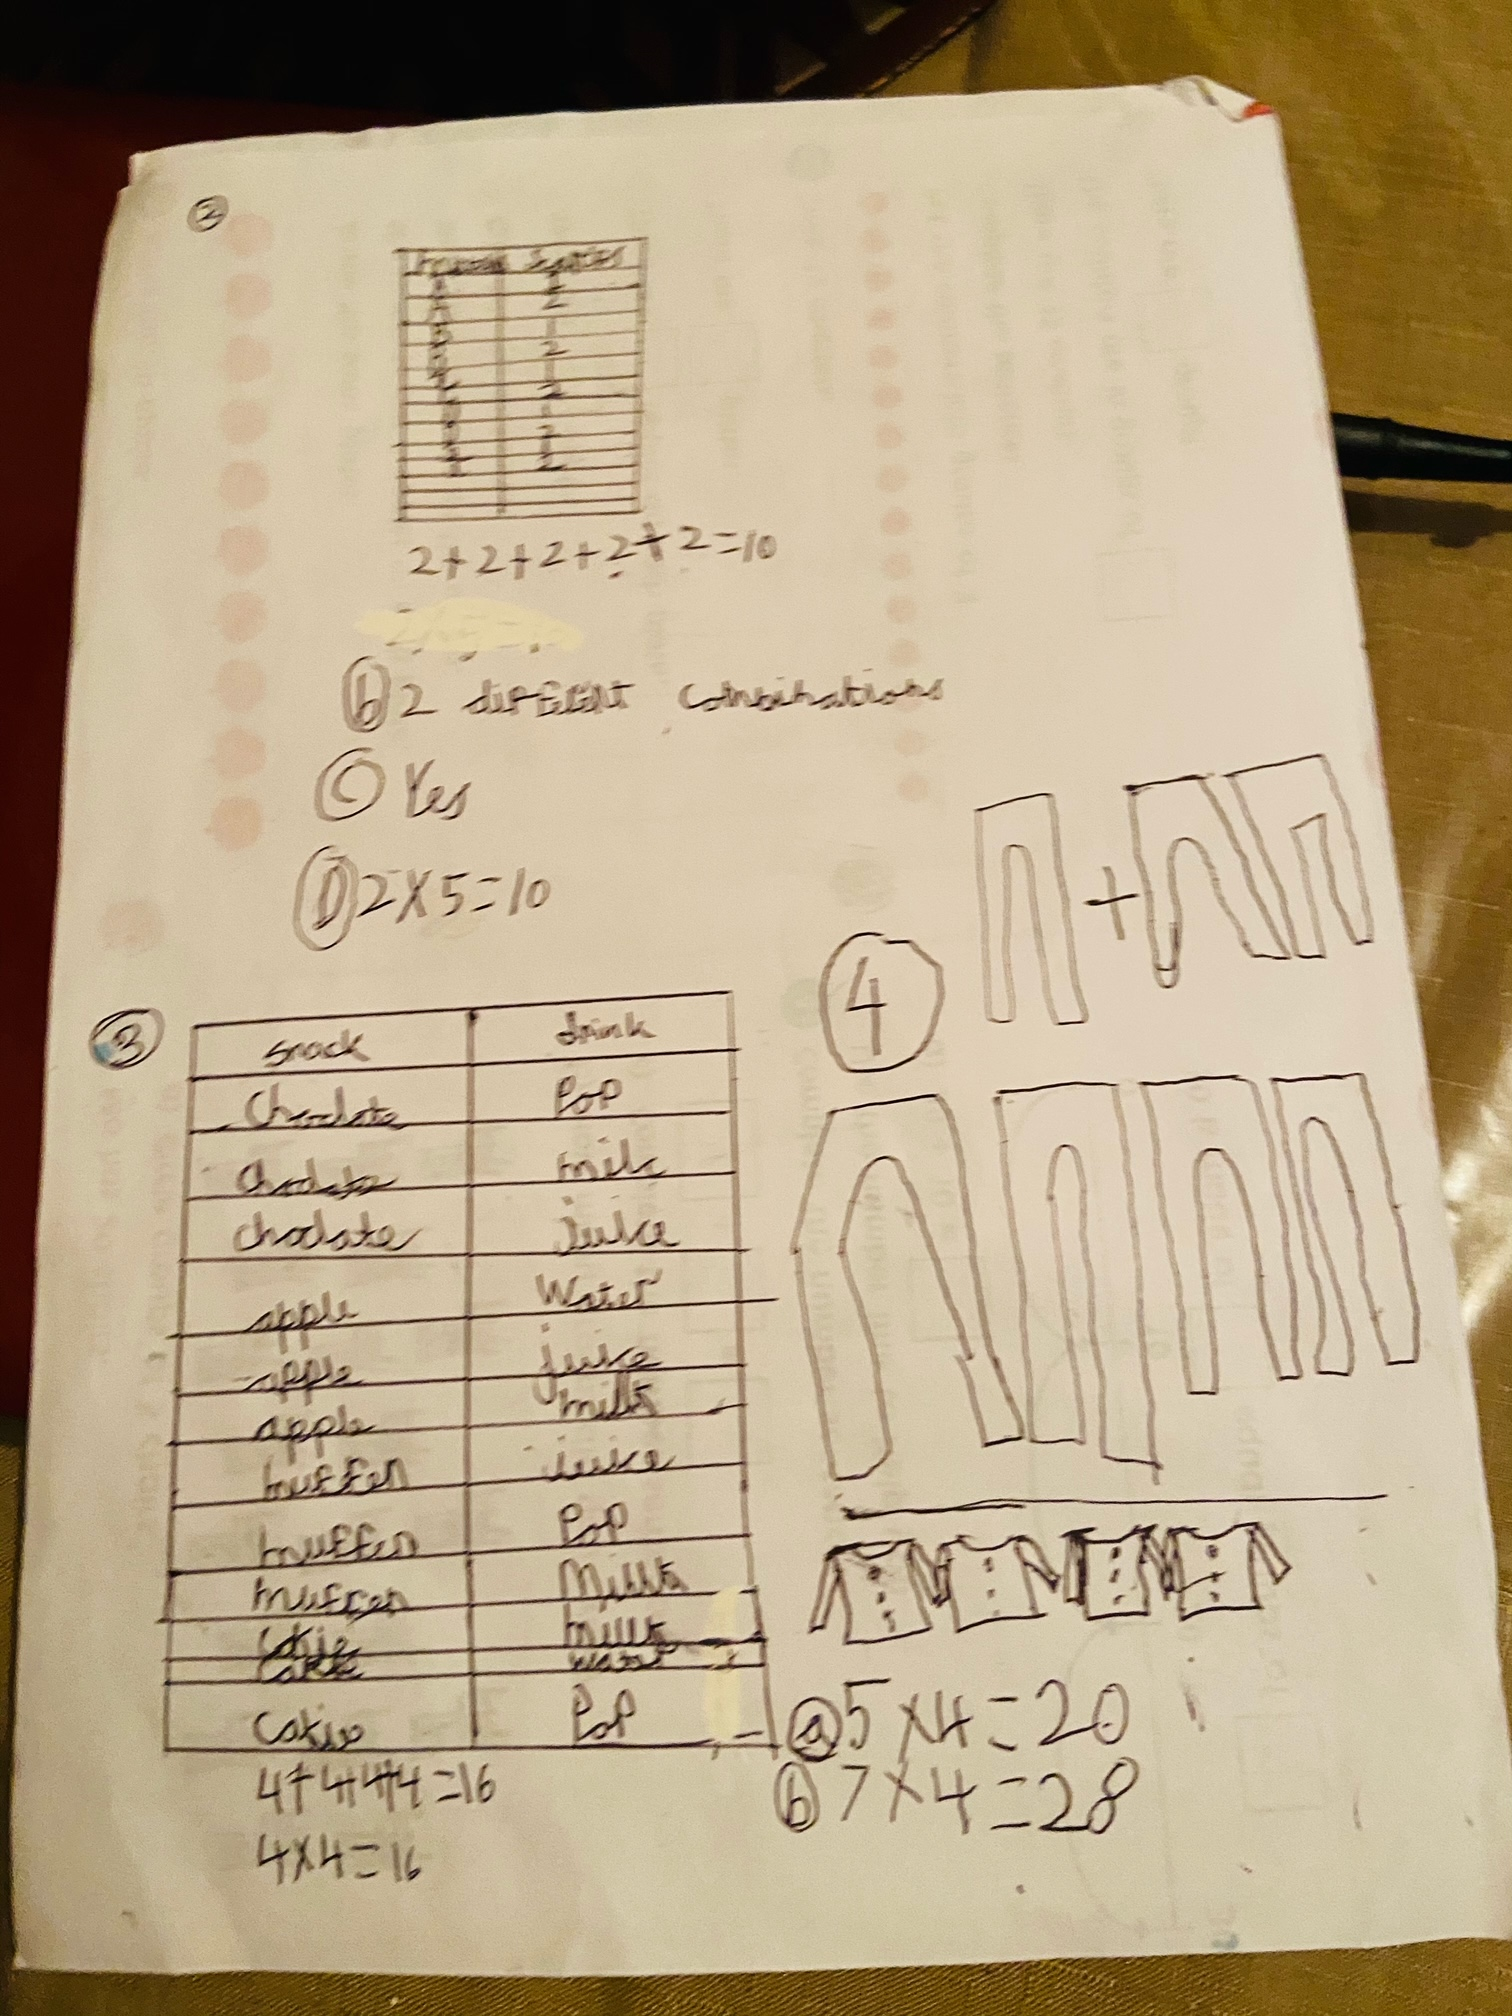 2
2
1
2
1
2
1
2
1
2
2+2+2+2+2=10
b 2 different combinations
C Yes
D 2x5=10
3
snack drink
Choclate Pop
Choclate milk
choclate juice
apple Water
apple juice
apple milk
muffen juice
muffen Pop
muffen Milk
milk
water
Pop
4+4+4+4=16
4x4=16
4
+
a 5x4=20
b 7x4=28